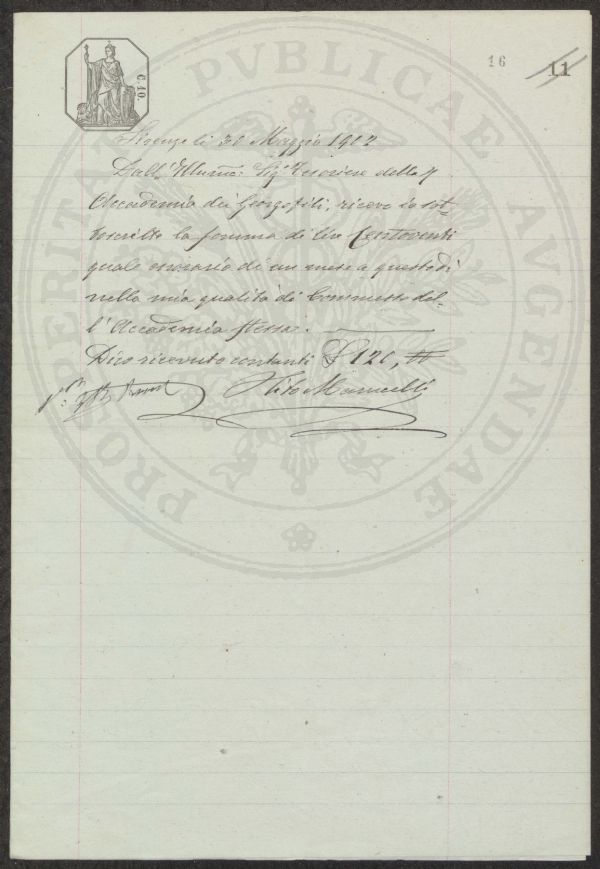 PROSPERITATI PVBLICAE AVGENDAE
C. 10.
16
11
Firenze li 30 Maggio 1902
Dall' Illumo: Sigr Tesoriere della R
Accademia dei Georgofili, ricevo io sot-
toscritto la somma di lire Centoventi
quale onorario di un mese a questo dì
nella mia qualità di Commesso del-
l'Accademia stessa.
Dico ricevuto contanti £ 120,
Tito Marucelli